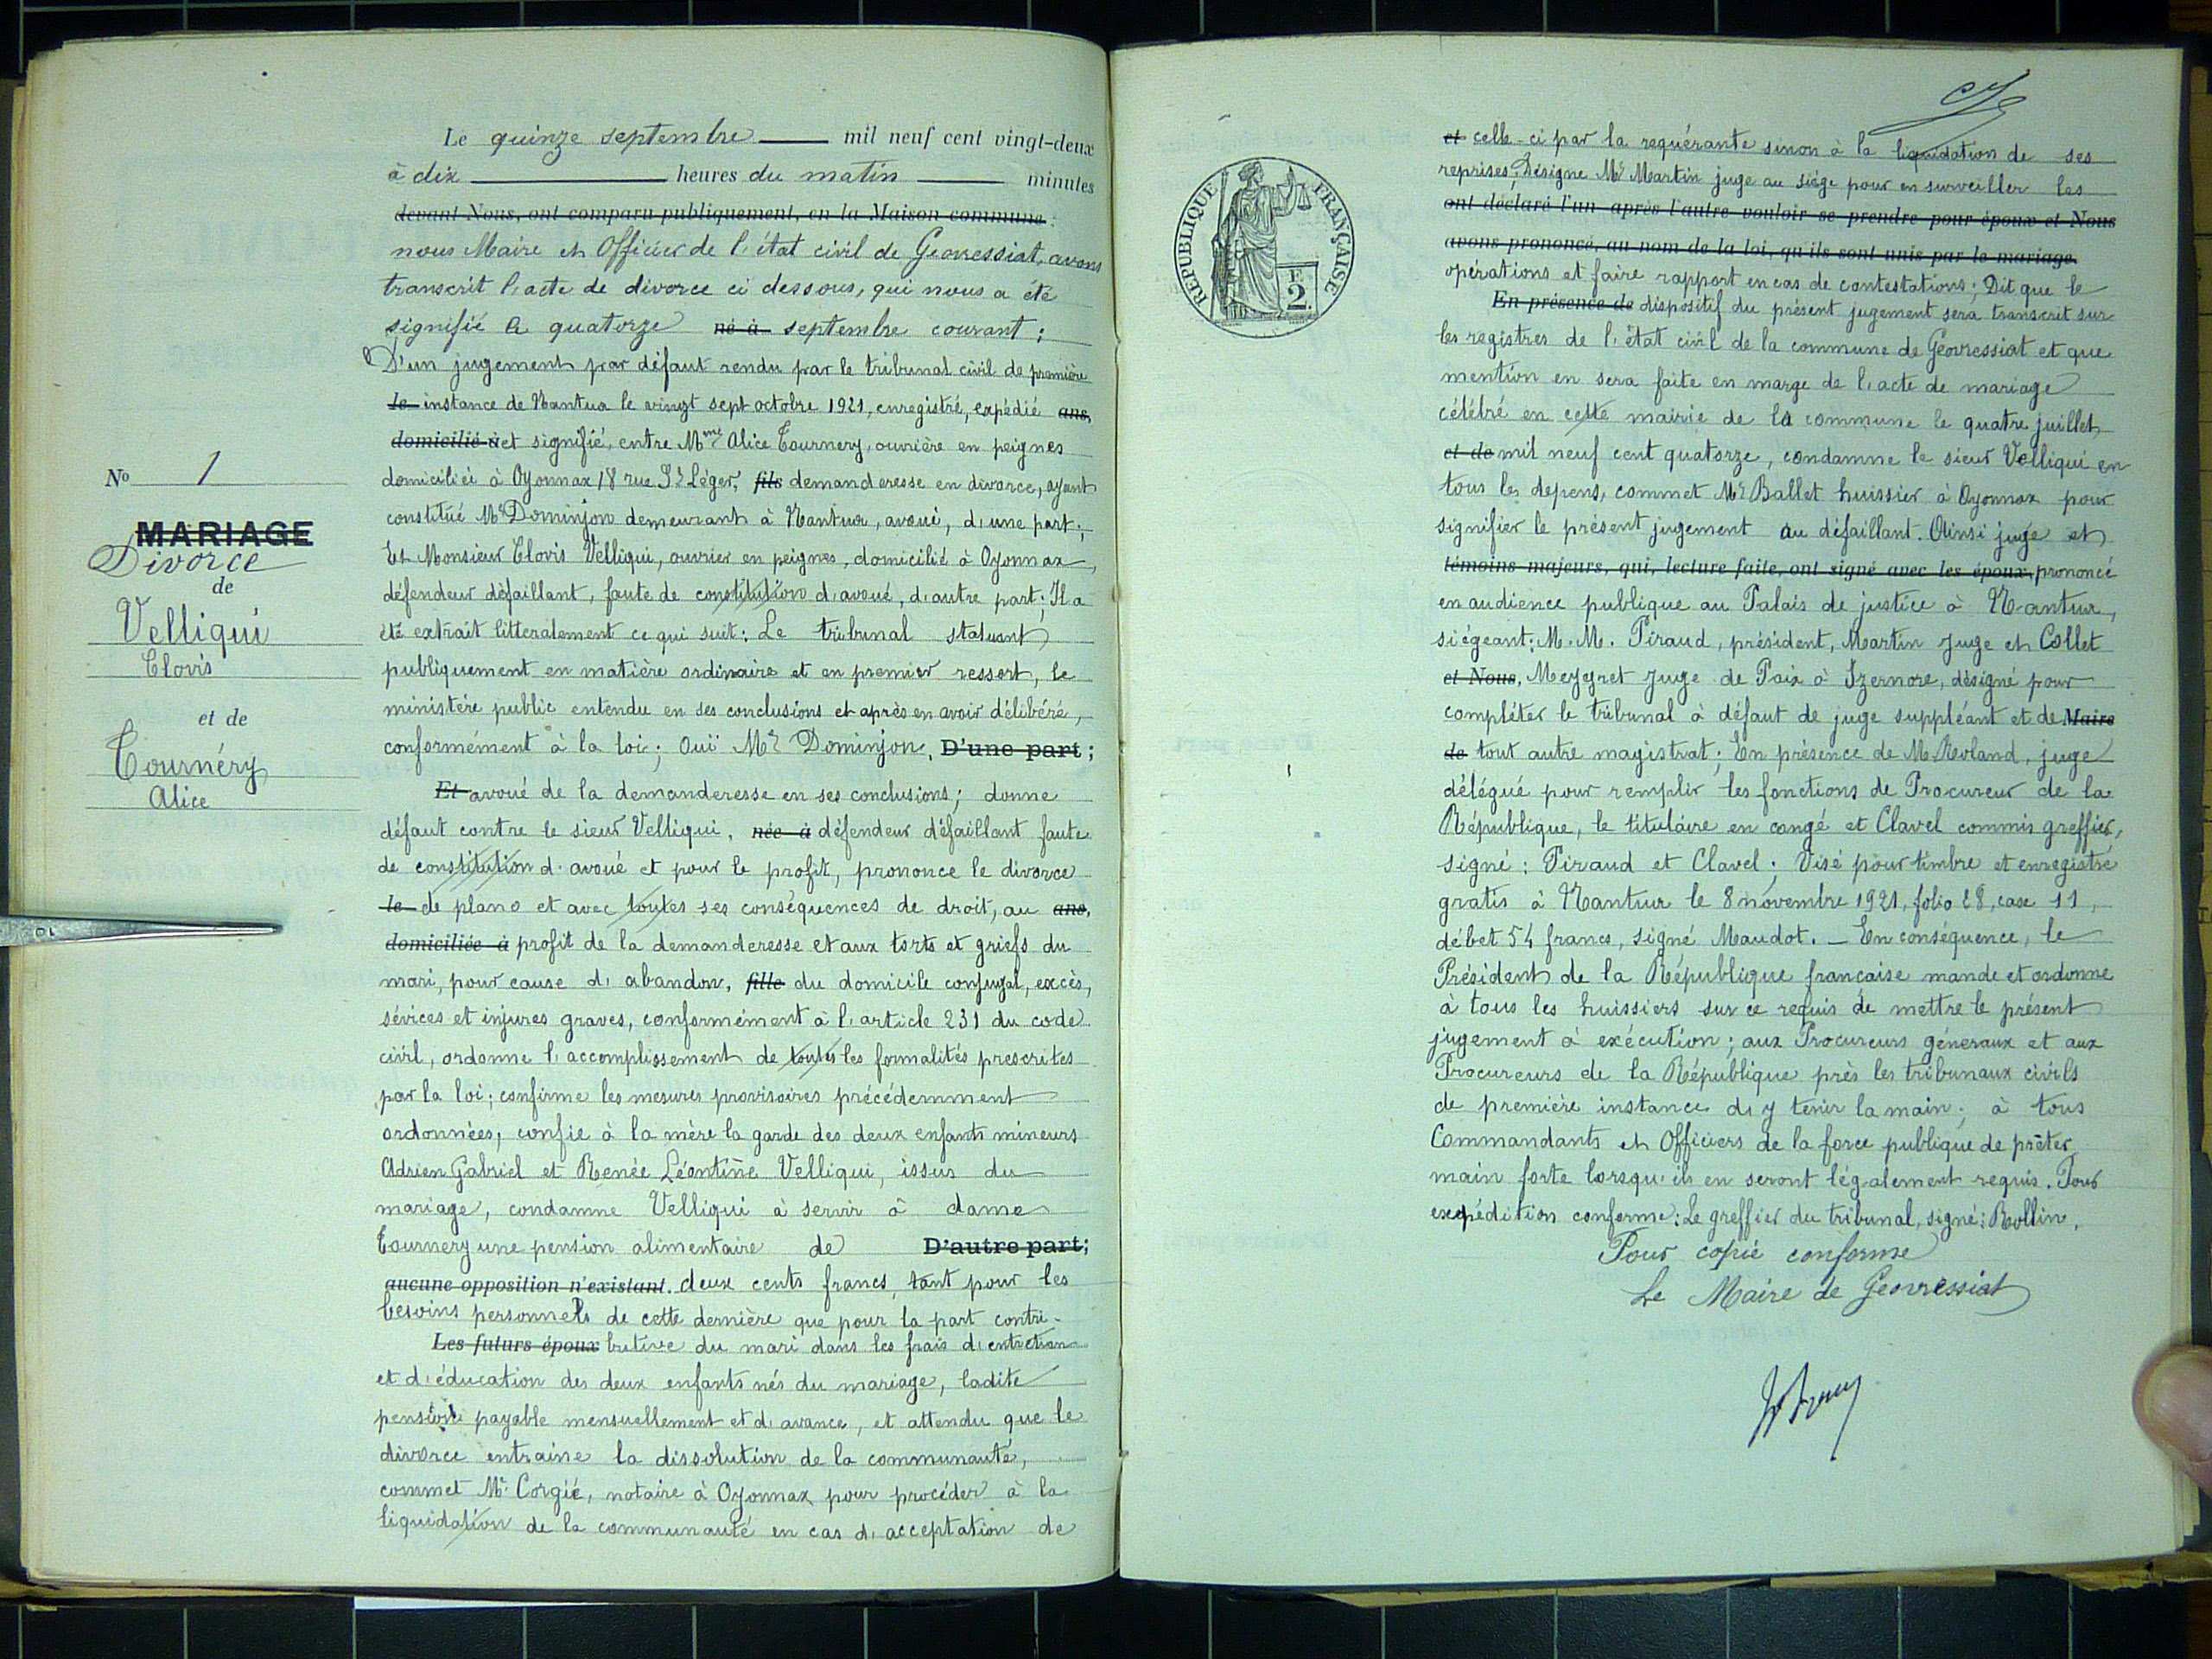 Le quinze septembre mil neuf cent vingt-deux
à dix heures du matin minutes
devant Nous, ont comparu publiquement, en la Maison commune :
nous Maire et Officier de l'état civil de Geovressiat, avons
transcrit l'acte de divorce ci dessous, qui nous a été
signifié le quatorze né à septembre courant ;
D'un jugement par défaut rendu par le tribunal civil de première
le instance de Nantua le vingt sept octobre 1921, enregistré, expédié ans,
domicilié à et signifié, entre Mme Alice Tournery, ouvrière en peignes
domiciliée à Oyonnax 18 rue St Léger, fils demanderesse en divorce, ayant
constitué Me Dominjon demeurant à Nantua, avoué, d'une part ;
Et Monsieur Clovis Velliqui, ouvrier en peignes, domicilié à Oyonnax,
défendeur défaillant, faute de constitution d'avoué, d'autre part ; Il a
été extrait litteralement ce qui suit : Le tribunal statuant
publiquement en matière ordinaire et en premier ressort, le
ministère public entendu en ses conclusions et après en avoir délibéré,
conformément à la loi ; Ouï Me Dominjon, D'une part ;
Et avoué de la demanderesse en ses conclusions ; donne
défaut contre le sieur Velliqui, née à défendeur défaillant faute
de constitution d'avoué et pour le profit, prononce le divorce
le de plano et avec toutes ses conséquences de droit, au ans,
domiciliée à profit de la demanderesse et aux torts et griefs du
mari, pour cause d'abandon, fille du domicile conjugal, excès,
sévices et injures graves, conformément à l'article 231 du code
civil, ordonne l'accomplissement de toutes les formalités prescrites
par la loi ; confirme les mesures provisoires précédemment
ordonnées, confie à la mère la garde des deux enfants mineurs
Adrien Gabriel et Renée Léontine Velliqui, issus du
mariage, condamne Velliqui à servir à dame
Tournery une pension alimentaire de D'autre part ;
aucune opposition n'existant. deux cents francs, tant pour les
besoins personnels de cette dernière que pour la part contri-
Les futurs époux butive du mari dans les frais d'entretien
et d'éducation des deux enfants nés du mariage, ladite
pension payable mensuellement et d'avance, et attendu que le
divorce entraine la dissolution de la communauté,
commet Me Corgié, notaire à Oyonnax pour procéder à la
liquidation de la communauté en cas d'acceptation de
No 1
MARIAGE
Divorce
de
Velliqui
Clovis
et de
Tournéry
Alice
RÉPUBLIQUE FRANÇAISE
F.
2.
et celle-ci par la requérante sinon à la liquidation de ses
reprises ; Désigne Mr Martin juge au siège pour en surveiller les
ont déclaré l'un après l'autre vouloir se prendre pour époux et Nous
avons prononcé, au nom de la loi, qu'ils sont unis par le mariage.
opérations et faire rapport en cas de contestations ; Dit que le
En présence de dispositif du présent jugement sera transcrit sur
les registres de l'état civil de la commune de Géovressiat et que
mention en sera faite en marge de l'acte de mariage
célébré en cette mairie de la commune le quatre juillet
et de mil neuf cent quatorze, condamne le sieur Velliqui en
tous les depens, commet Me Ballet huissier à Oyonnax pour
signifier le présent jugement au défaillant. Ainsi jugé et
témoins majeurs, qui, lecture faite, ont signé avec les époux, prononcé
en audience publique au Palais de justice à Nantua,
siégeant : M. M. Piraud, président, Martin Juge et Collet
et Nous, Meygret Juge de Paix à Izernore, désigné pour
compléter le tribunal à défaut de juge suppléant et de Maire
de tout autre magistrat ; En présence de M. Revland, juge
délégué pour remplir les fonctions de Procureur de la
République, le titulaire en congé et Clavel commis greffier,
signé : Piraud et Clavel ; Visé pour timbre et enregistré
gratis à Nantua le 8 novembre 1921, folio 28, case 11,
débet 54 francs, signé Maudot. — En conséquence, le
Président de la République francaise mande et ordonne
à tous les huissiers sur ce requis de mettre le présent
jugement à exécution ; aux Procureurs généraux et aux
Procureurs de la République près les tribunaux civils
de première instance d'y tenir la main ; à tous
Commandants et Officiers de la force publique de prêter
main forte lorsqu'ils en seront légalement requis. Pour
expédition conforme : Le greffier du tribunal, signé : Rollin,
Pour copie conforme
Le Maire de Geovressiat